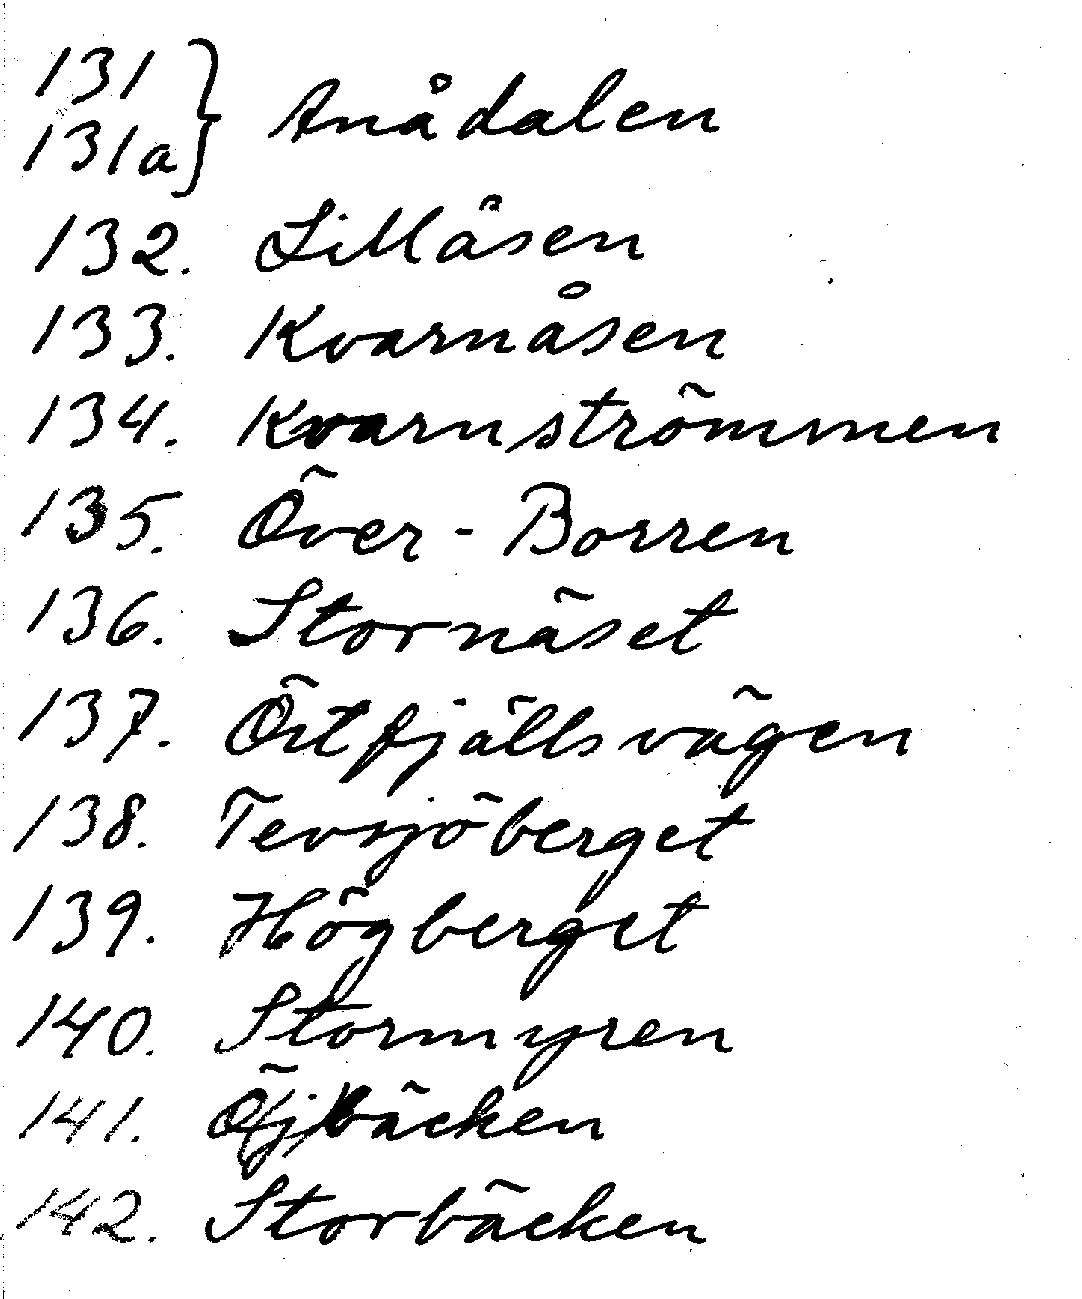 131
131a } Anådalen
132. Lillåsen
133. Kvarnåsen
134. Kvarnströmmen
135. Över-Borren
136. Stornäset
137. Örtfjällsvägen
138. Tevsjöberget
139. Högberget
140. Stormyren
141.
142. Storbäcken